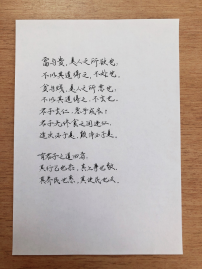 富与贵，是人之所欲也，
不以其道得之，不处也。
贫与贱，是人之所恶也，
不以其道得之，不去也。
君子去仁，恶乎成名？
君子无终食之间违仁，
造次必于是，颠沛必于是。
有君子之道四焉，
其行己也恭，其事上也敬，
其养民也惠，其使民也义。